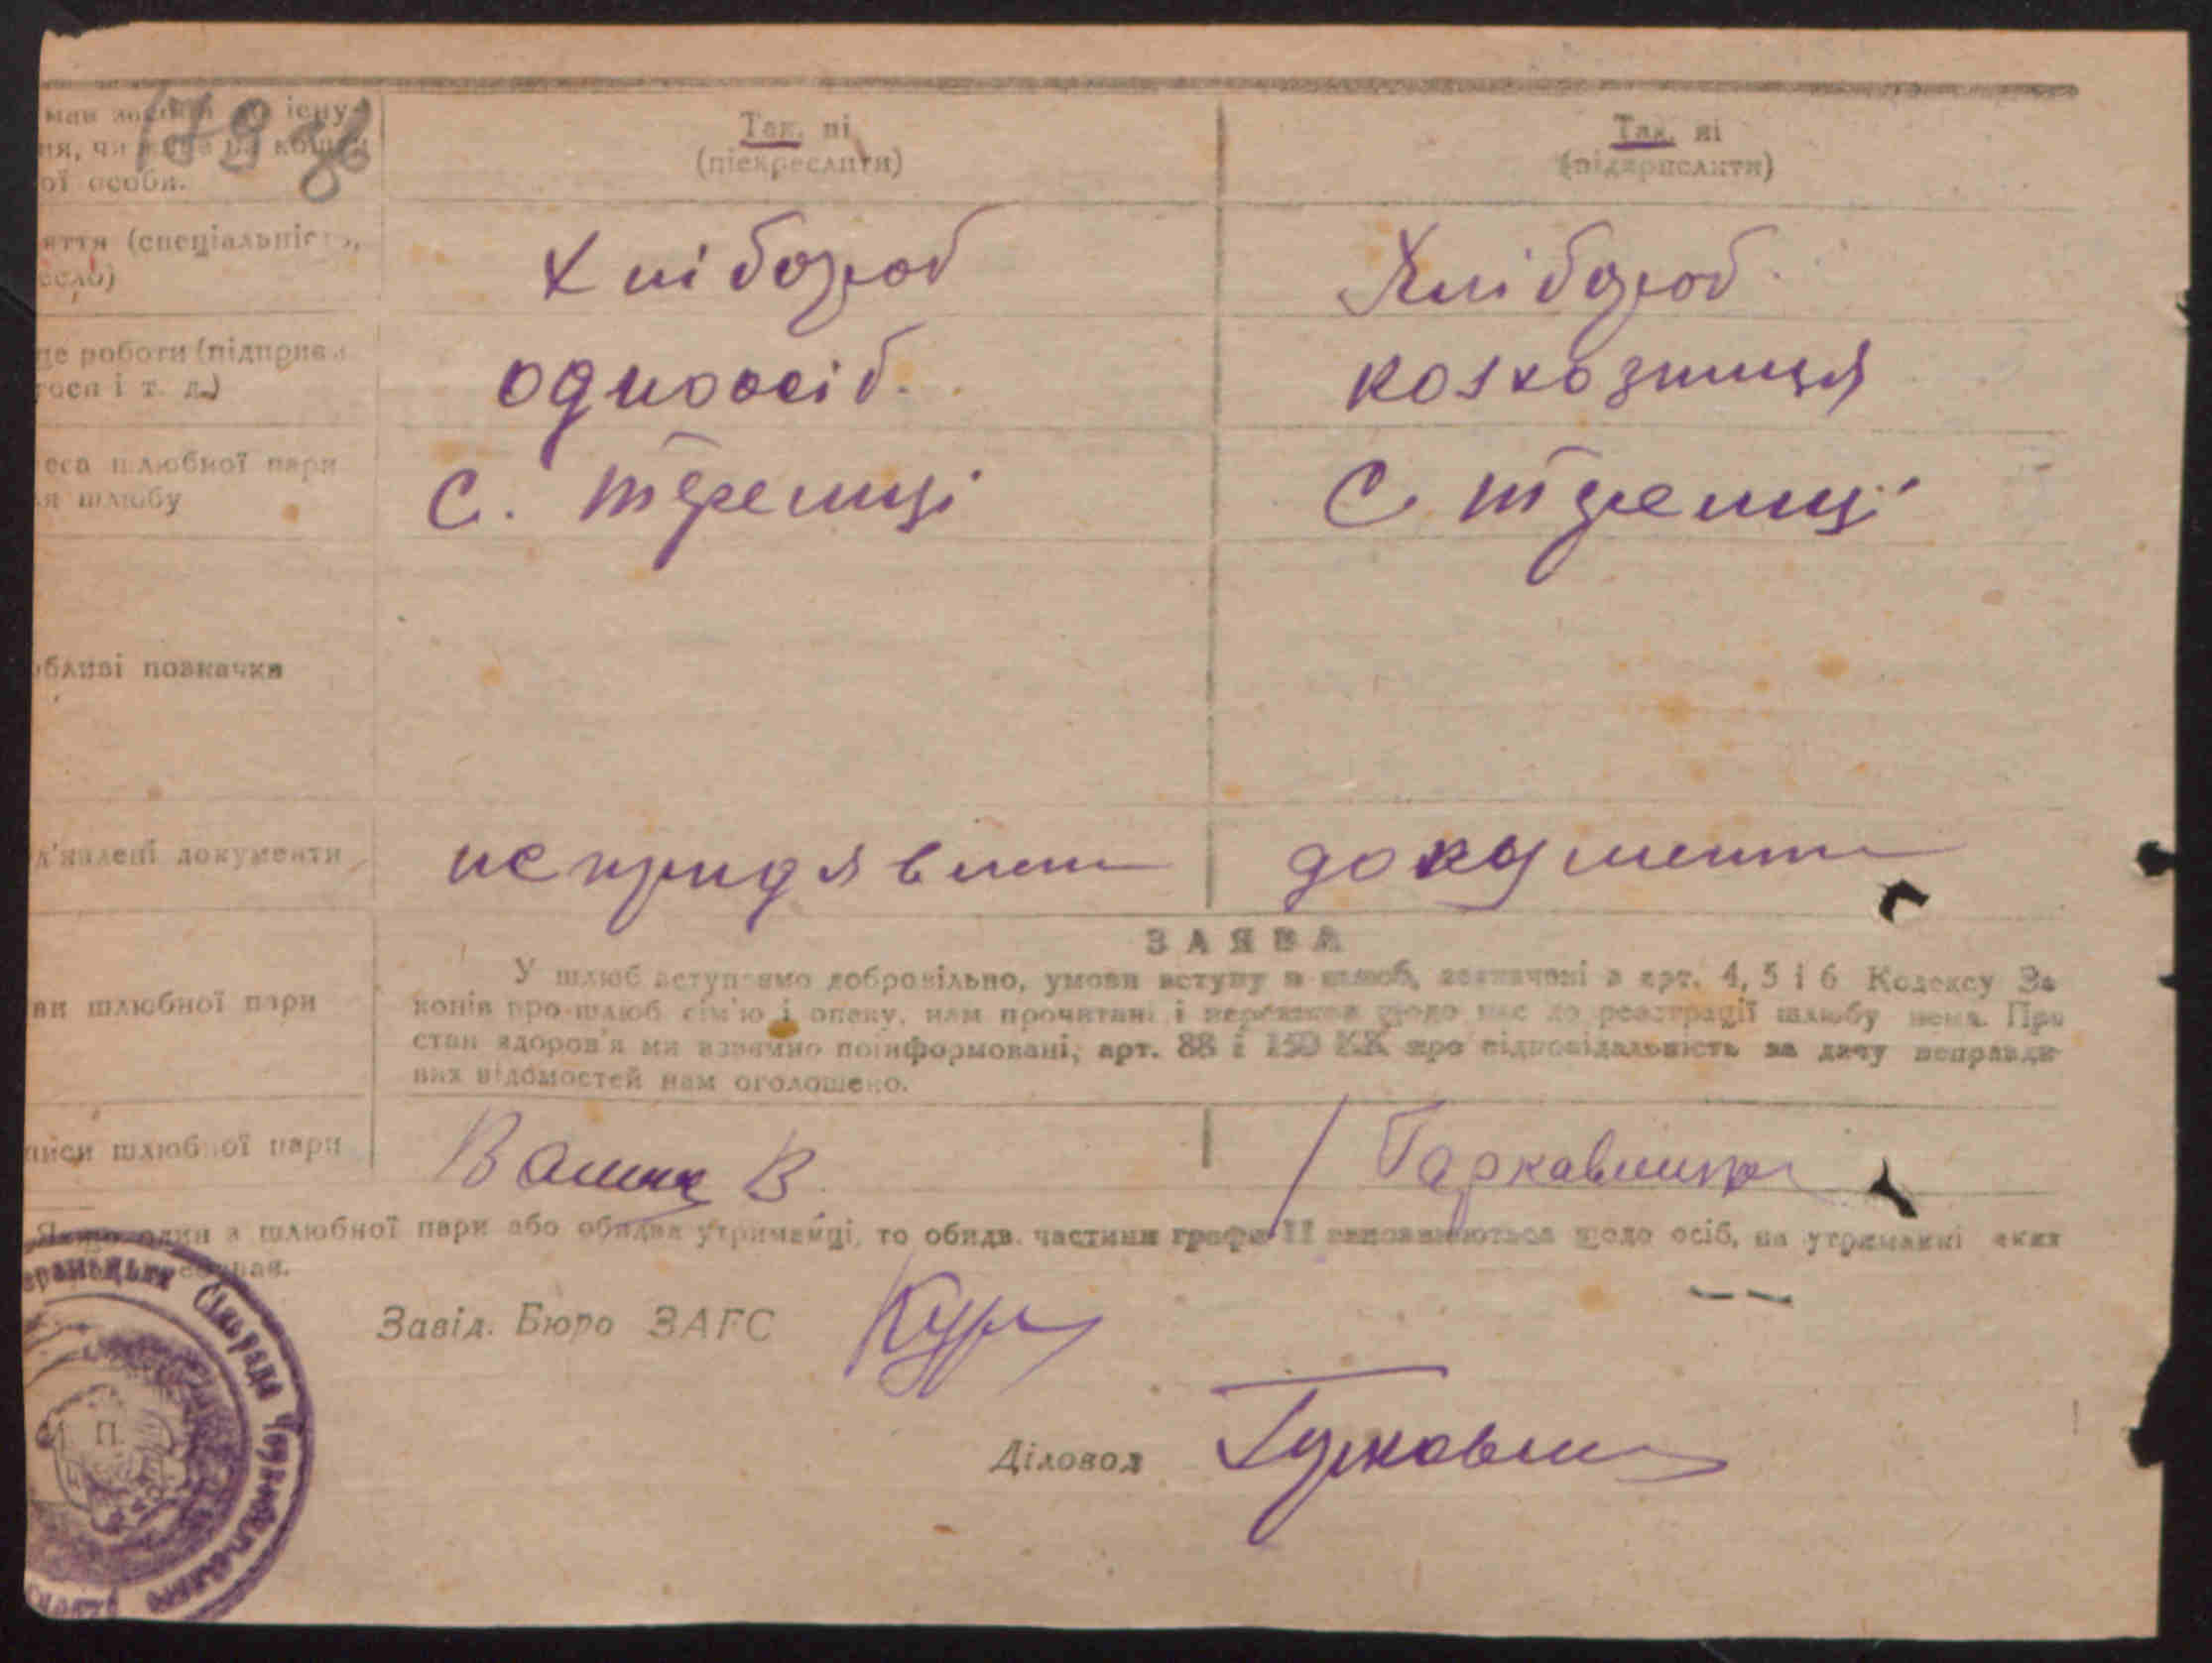 179 зв
має
ня, чи
ої особи.
Так, ні
(підкреслити)
Так, ні
(підкреслити)
яття (спеціальність,
есло)
Хлібороб
Хлібороб
це роботи (підприєм
госп і т. д.)
одноосіб.
колхозниця
еса шлюбної пари
ля шлюбу
С. Терешці
С Терешці
обливі позначки
д'явлені документи
не придявлени документи
ЗАЯВА
ви шлюбної пари
У шлюб вступаємо добровільно, умови вступу в шлюб, зазначені в арт. 4, 5 і 6 Кодексу За
конів про шлюб сім'ю і опеку, нам прочитані і перешкод щодо нас до реєстрації шлюбу нема. Про
стан здоров'я ми взаємно поінформовані, арт. 88 і КК про відповідальність за дачу неправди
вих відомостей нам оголошено.
писи шлюбної пари
В
Якщо один з шлюбної пари або обидва утриманці, то обидв. частини графи 11 виповнюються щодо осіб, на утриманні яких
Завід. Бюро ЗАГС
Діловод
М. П.